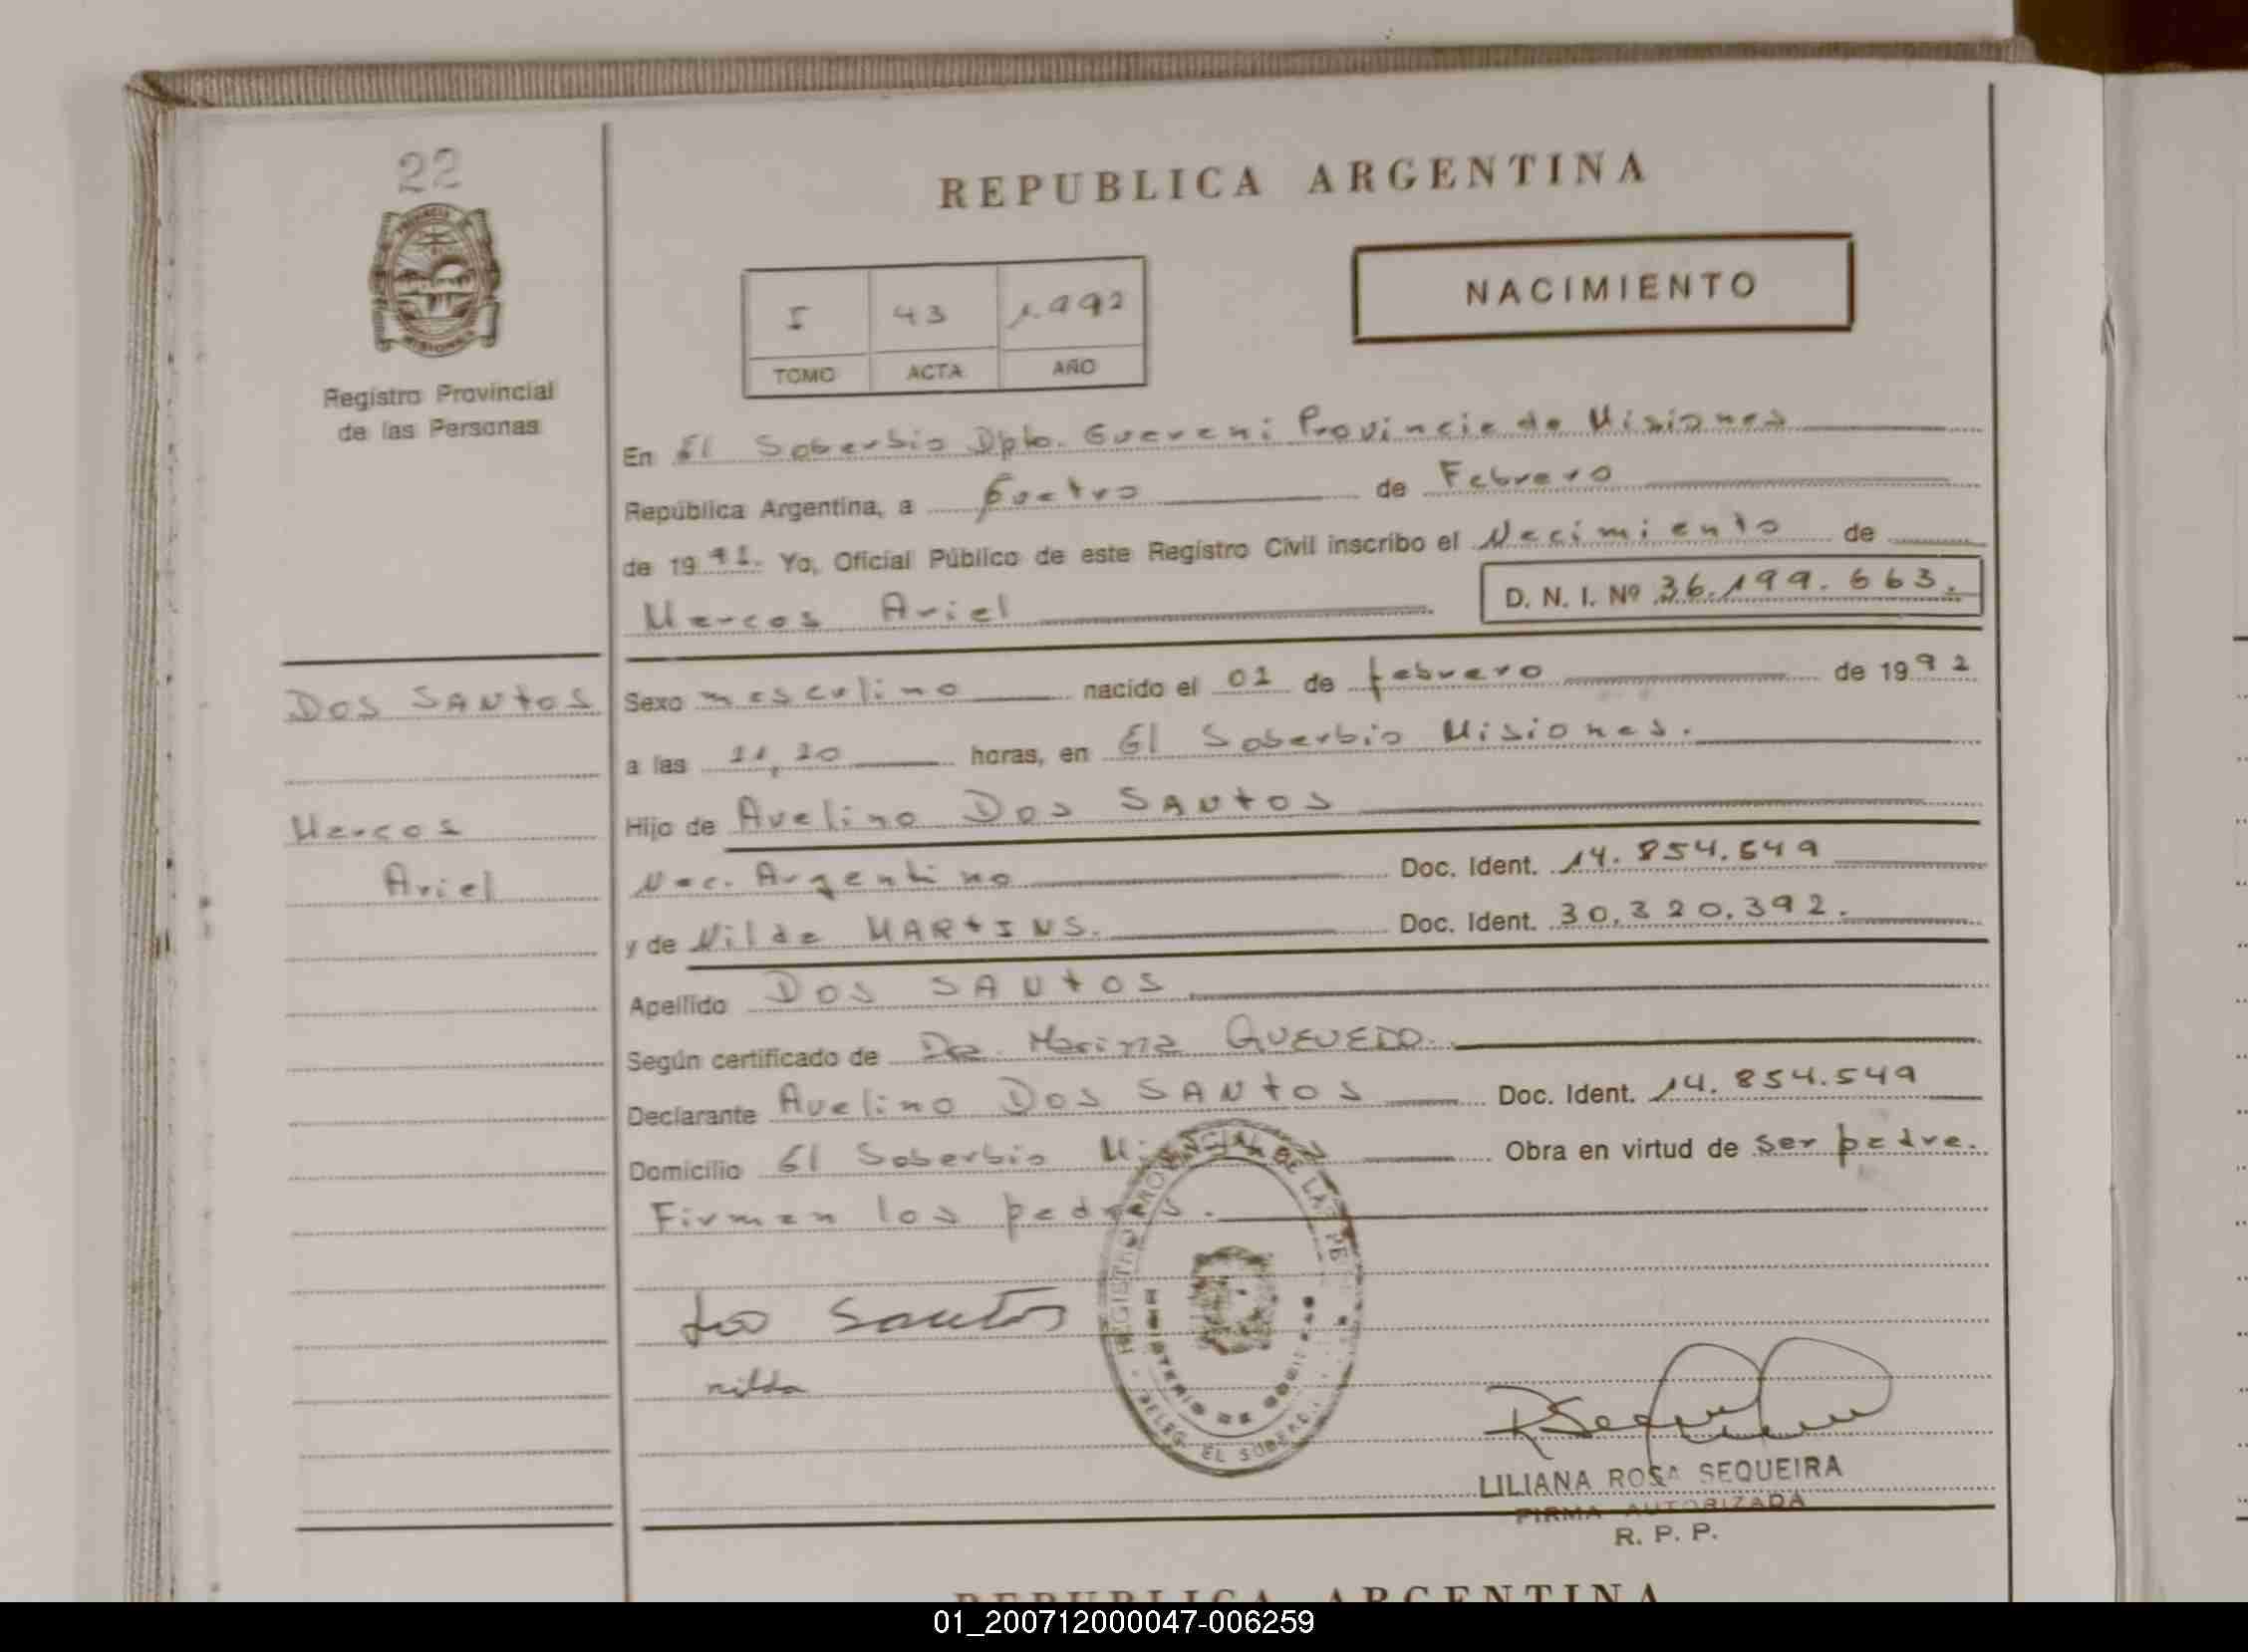 22
Registro Provincial
de las Personas
REPUBLICA ARGENTINA
NACIMIENTO
I 43 1.992
TOMO ACTA AÑO
En El Soberbio Dpto. Guarani Provincia de Misiones
República Argentina, a Cuatro de Febrero
de 19 92. Yo, Oficial Público de este Registro Civil inscribo el Nacimiento de
Marcos Ariel
D. N. I. Nº 36.199.663.
DOS SANTOS
Marcos
Ariel
Sexo masculino nacido el 02 de febrero de 1992
a las horas, en El Soberbio Misiones.
Hijo de Avelino Dos SANTOS
Nac. Argentino Doc. Ident. 14.854.549
y de Nilda MARTINS. Doc. Ident. 30.320.392.
Apellido DOS SANTOS
Según certificado de Dra. Marina QUEVEDO.
Declarante Avelino Dos SANTOS Doc. Ident. 14.854.549
Domicilio El Soberbio Obra en virtud de ser padre.
Firman los padres.
dos Santos
nilda
REGISTRO PROVINCIAL DE LAS PE
MINISTERIO DE
DELEG. EL SOBERB
LILIANA ROSA SEQUEIRA
FIRMA AUTORIZADA
R. P. P.
REPUBLICA ARGENTINA
01_200712000047-006259